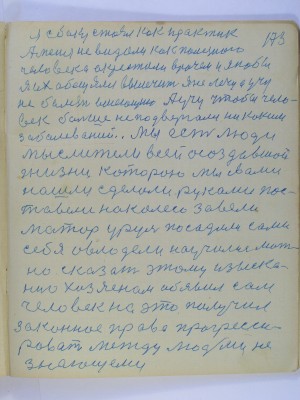 173
я с боку стоял как практик
А меня не видали как полезного
человека окрестили врачом и якобы
я их обещали вылечит я не лечу а учу
не болет внешно А учу чтобы чело-
век больше не подвергался ни каким
заболеваний. Мы ест люди
мыслители всей создавшой
жизни которою мы с вами
нашли сделали руками пос-
тавили на колесо завели
матор у руля посадили сами
себя овлодели научились мож-
но сказат этому изыска-
нию хозяенам обявил сам
человек на это получил
законное право прогресси-
роват между люд/ми не
знающеми